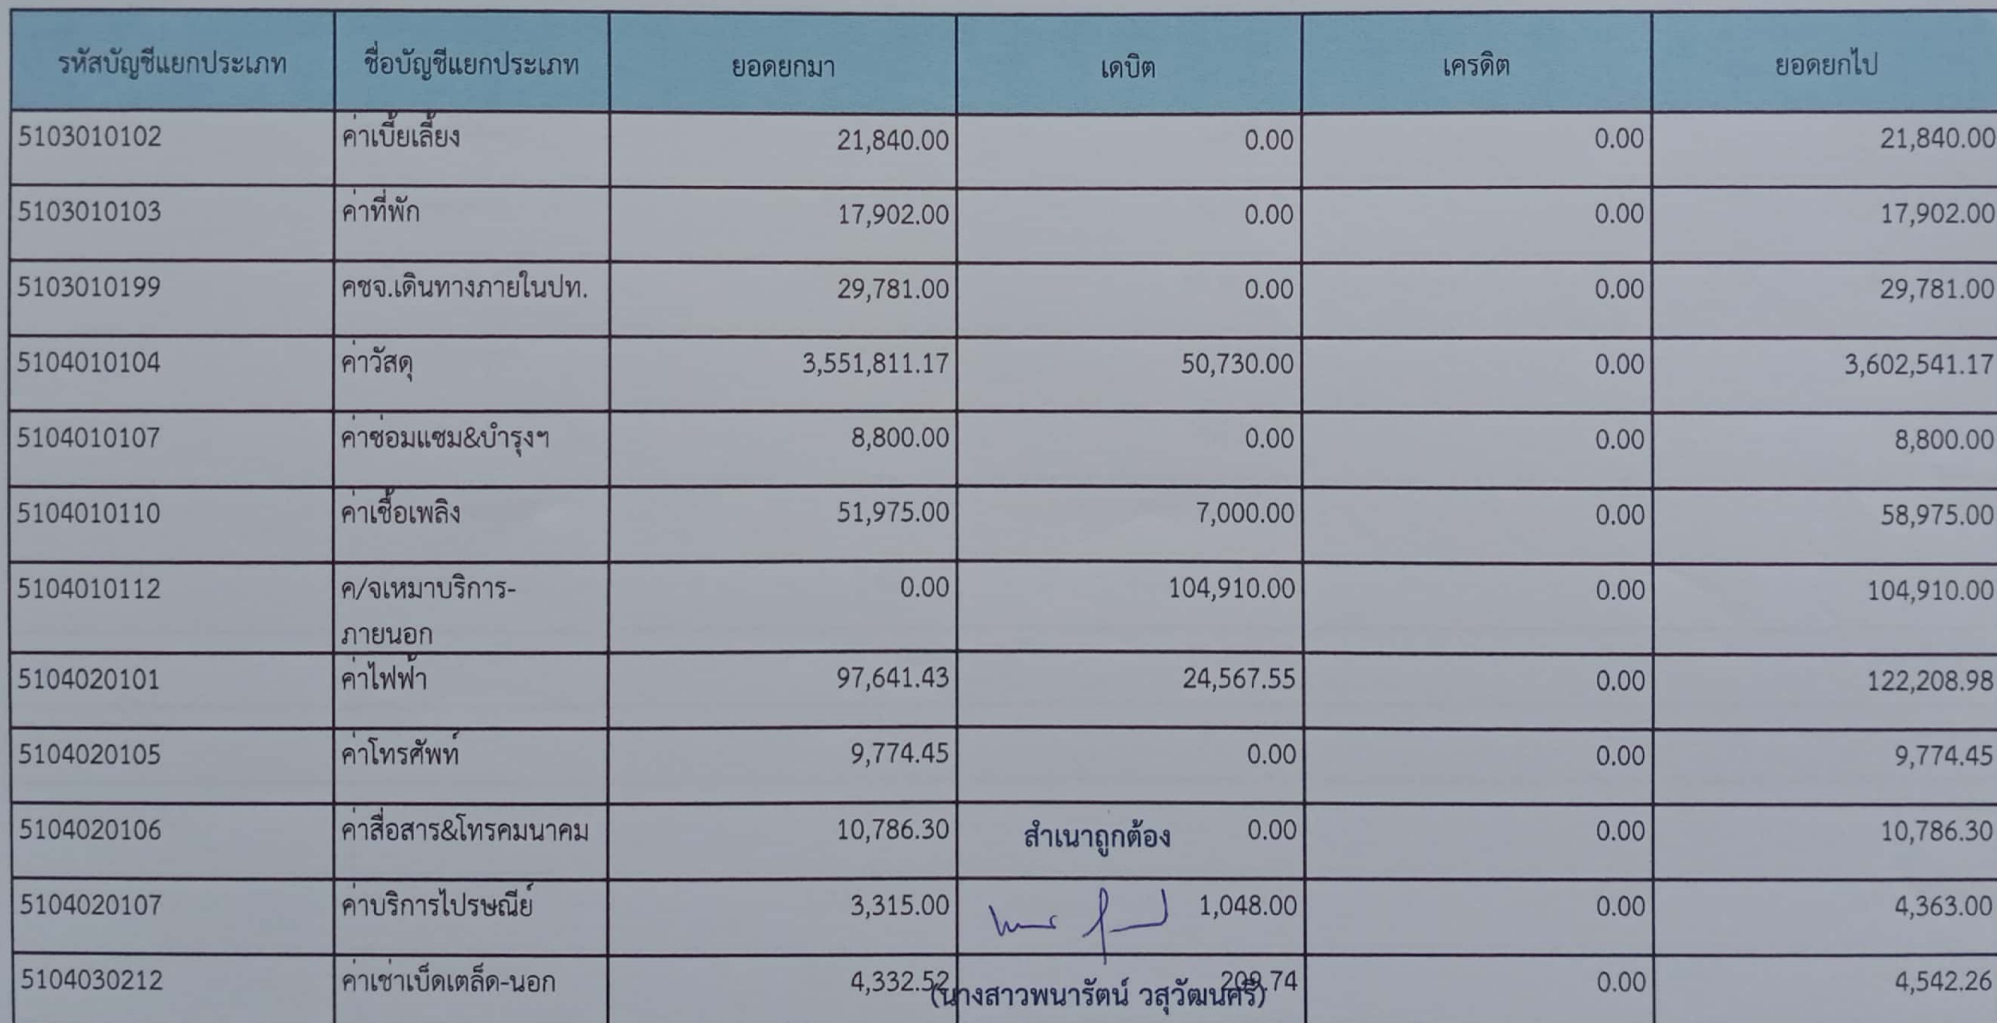 รหัสบัญชีแยกประเภท ชื่อบัญชีแยกประเภท ยอดยกมา เดบิต เครดิต ยอดยกไป
5103010102 ค่าเบี้ยเลี้ยง 21,840.00 0.00 0.00 21,840.00
5103010103 ค่าที่พัก 17,902.00 0.00 0.00 17,902.00
5103010199 คชจ.เดินทางภายในปท. 29,781.00 0.00 0.00 29,781.00
5104010104 ค่าวัสดุ 3,551,811.17 50,730.00 0.00 3,602,541.17
5104010107 ค่าซ่อมแซม&บำรุงฯ 8,800.00 0.00 0.00 8,800.00
5104010110 ค่าเชื้อเพลิง 51,975.00 7,000.00 0.00 58,975.00
5104010112 ค/จเหมาบริการ- 0.00 104,910.00 0.00 104,910.00
ภายนอก
5104020101 ค่าไฟฟ้า 97,641.43 24,567.55 0.00 122,208.98
5104020105 ค่าโทรศัพท์ 9,774.45 0.00 0.00 9,774.45
5104020106 ค่าสื่อสาร&โทรคมนาคม 10,786.30 สำเนาถูกต้อง 0.00 0.00 10,786.30
5104020107 ค่าบริการไปรษณีย์ 3,315.00 1,048.00 0.00 4,363.00
5104030212 ค่าเช่าเบ็ดเตล็ด-นอก 4,332.52 209.74 0.00 4,542.26
(นางสาวพนารัตน์ วสุวัฒนศรี)